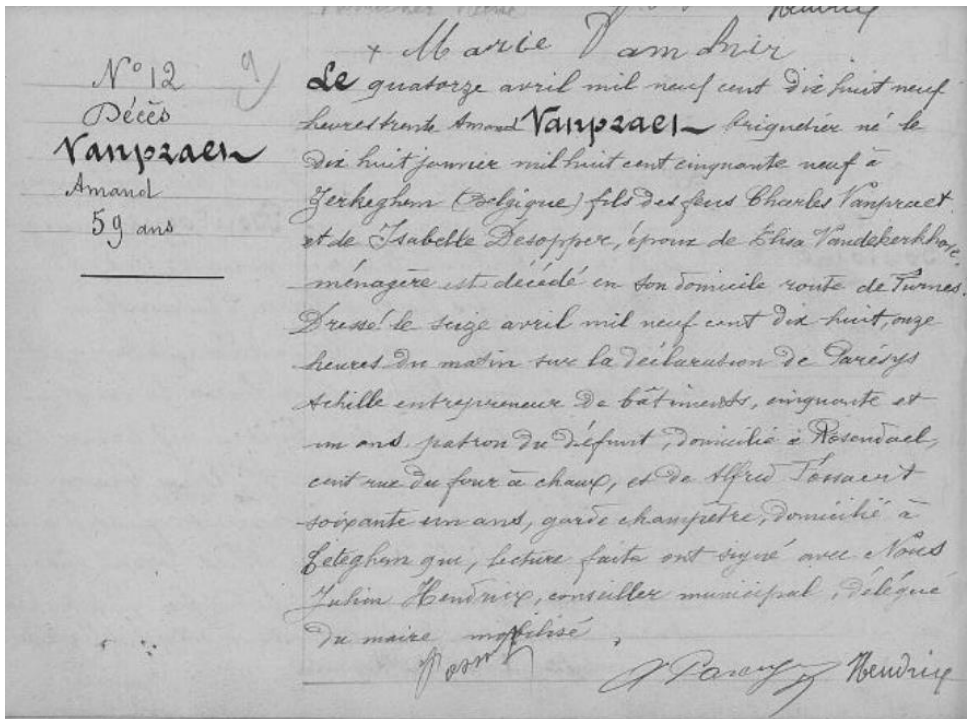 Hendrix
+ Marie Vam
N° 12 9
Décès
Vanpraet
Amand
59 ans
Le quatorze avril mil neuf cent dix huit neuf
heures trente Amand Vanpraet briquetier né le
dix huit janvier mil huit cent cinquante neuf à
Zerkeghem (Belgique) fils des feus Charles Vanpraet
et de Isabelle Desopper, époux de Elisa Vandekerkhove
ménagère est décédé en son domicile route de Furnes.
Dressé le seize avril mil neuf cent dix huit, onze
heures du matin sur la déclaration de Parésys
Achille entrepreneur de bâtiments, cinquante et
un ans patron du défunt, domicilié à Rosendael,
cent rue du four à chaux, et de Alfred
soixante un ans, garde champêtre, domicilié à
Leteghem qui, lecture faite ont signé avec Nous
Hendrix, conseiller municipal, délégué
du maire mobilisé
Hendrix